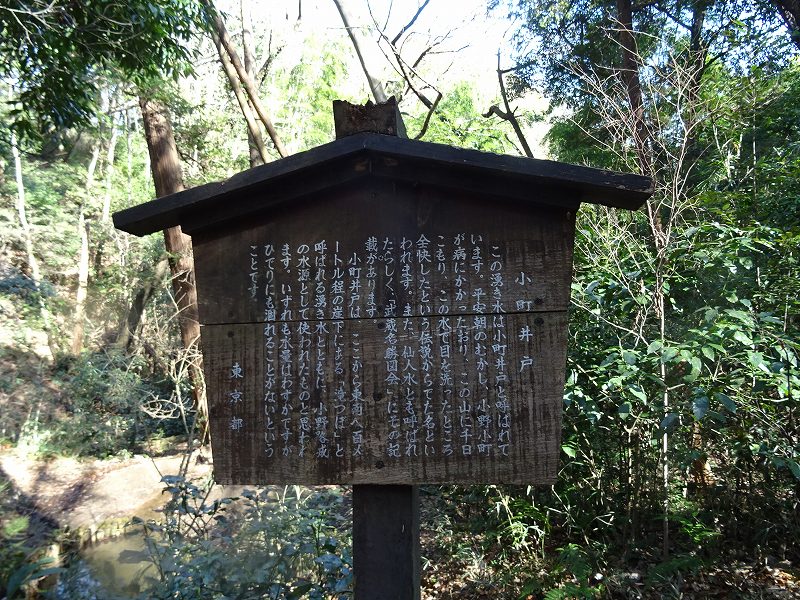 小町井戸
この湧き水は小町井戸と呼ばれて
います。平安朝のむかし、小野小町
が病にかかったおり、この山に千日
こもり、この水で目を洗ったところ
全快したという伝説からでた名とい
われます。また、仙人水とも呼ばれ
たらしく、「武蔵名勝図会」にその記
載があります。
小町井戸は、ここから東南八百メ
ートル程の崖下にある「滝つぼ」と
呼ばれる湧き水とともに、小野
の水源として使われたものと思われ
ます。いずれも水量はわずかですが
ひでりにも涸れることがないという
ことです。
東京都